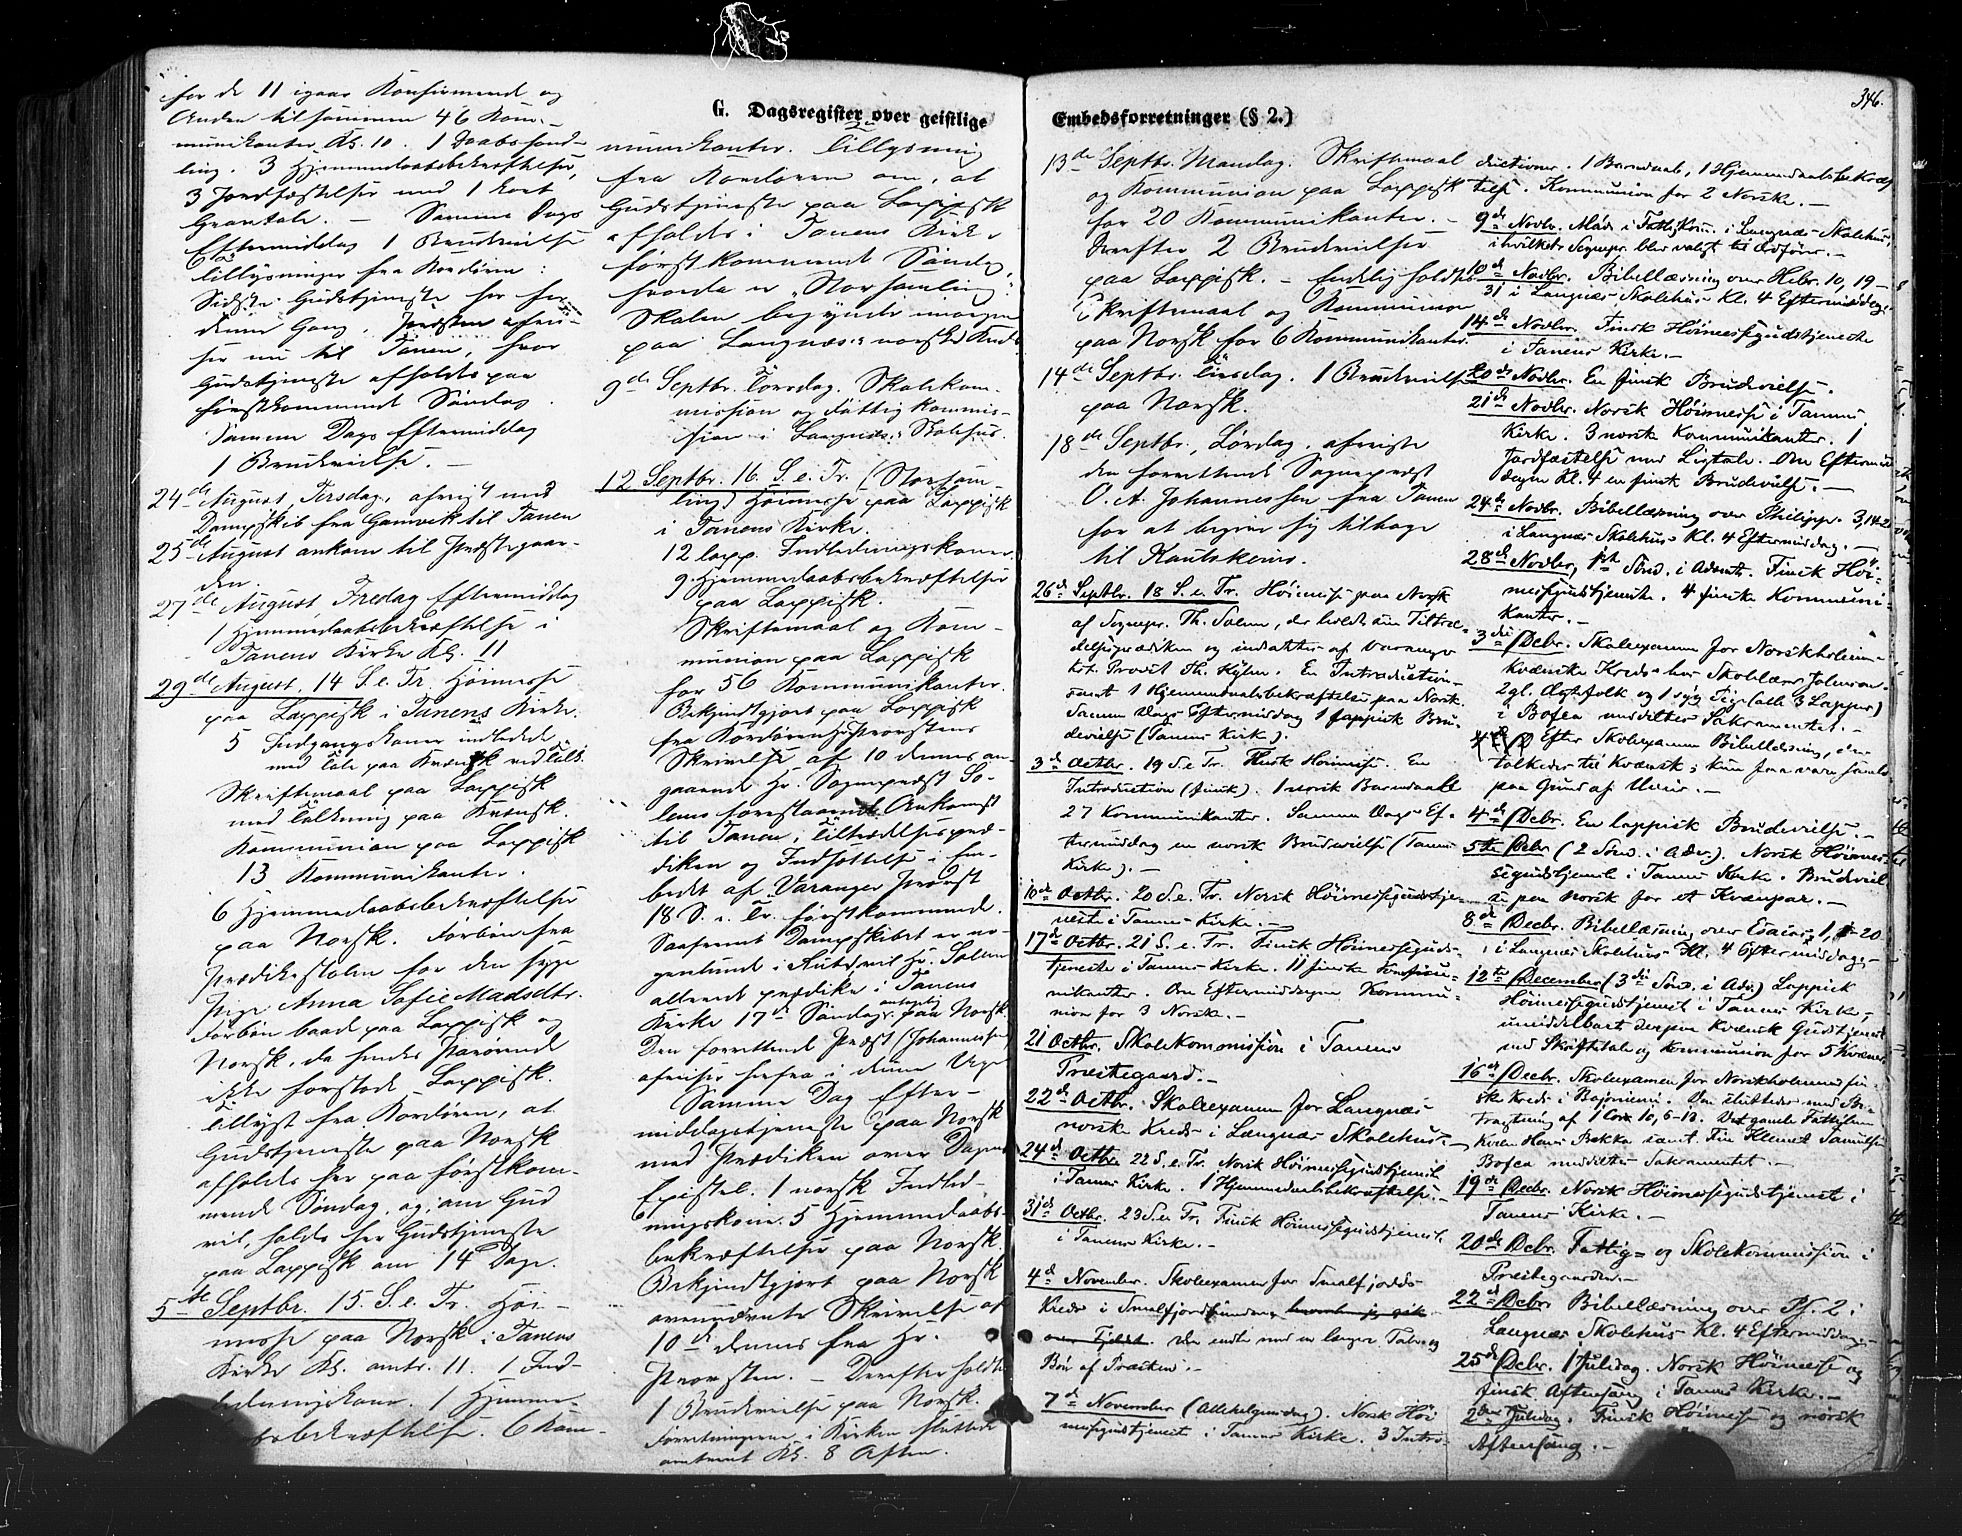 346.
G. Dagsregister over geistlige Embedsforretninger (§ 2.)
for de 11 igaar Konfirmerede og
Anden tilsammen 46 Kom-
munikanter Kl. 10. 1 Daabshand-
ling. 3 Hjemmedaabsbekræftelser,
3 Jordfæstelser med 1 kort
Gravtale. – Samme Dags
Eftermiddag 1 Brudevielse
6 Tillysninger fra Kordøren:
Sidste Gudstjeneste her for
denne Gang. Præsten afrei-
ser nu til Tanen, hvor
Gudstjeneste afholdes paa
førstkommende Søndag.
Samme Dags Eftermiddag
1 Brudevielse. –
24de August, Tirsdag, afreist med
Dampskib fra Gamvik til Tanen
25de August ankom til Præstegaar-
den.
27de August, Fredag Eftermiddag
1 Hjemmedaabsbekræftelse i
Tanens Kirke Kl. 11
29de August, 14 S. e. Tr. Høimesse
paa Lappisk i Tanens Kirke.
5 Indgangskoner indledede
med Tale paa Kvænsk ved Tolk.
Skriftemaal paa Lappisk
med Tolkning paa Kvænsk.
Kommunion paa Lappisk
13 Kommunikanter.
6 Hjemmedaabsbekræftelser
paa Norsk. Forbøn fra
Prædikestolen for den syge
Pige Anna Sofie Madsdtr.
Forbøn baade paa Lappisk og
Norsk, da hendes Paarørende
ikke forstode Lappisk.
Tillyst fra Kordøren, at
Gudstjeneste paa Norsk
afholdes her paa førstkom-
mende Søndag, og, om Gud
vil, holdes her Gudstjeneste
paa Lappisk om 14 Dage.
5te Septbr. 15. S. e. Tr. Høi-
messe paa Norsk i Tanens
Kirke Kl. omtr. 11. 1 Ind-
ledningskone. 1 Hjemme-
daabsbekræftelse. 6 Kom-
munikanter. Tillysning
fra Kordøren om, at
Gudstjeneste paa Lappisk
afholdes i Tanens Kirke
førstkommende Søndag,
hvorda er "Storsamling".
Skolen begynder imorgen
paa Langnæs: norske Kreds.
9de Septbr. Torsdag. Skolekom-
mission og Fattigkommis-
sion i Langnæs: Skolehus.
12 Septbr. 16. S. e. Tr. (Storsam-
ling) Høimesse paa Lappisk
i Tanens Kirke.
12 lapp. Indledningskoner
9 Hjemmedaabsbekræftelser
paa Lappisk.
Skriftemaal og Kom-
munion paa Lappisk
for 56 Kommunikanter.
Bekjendtgjort paa Lappisk
fra Kordøren Hr. Provstens
Skrivelse af 10 dennes an-
gaaende Hr. Sogneprest So-
lems forestaaende Ankomst
til Tanen, Tiltrædelsespræ-
diken og Indsættelse i Em-
bedet af Varanger Provst
18 S. e. Tr. førstkommende.
Saafremt Dampskibet er no-
genlunde i Rute vil Hr. Solem
allerede prædike i Tanens
Kirke 17de Søndag antagelig paa Norsk.
Den forrettende Præst (Johannessen)
afreiser herfra i denne Uge
Samme Dag Efter-
middagstjeneste paa Norsk
med Prædiken over Dagens
Epistel. 1 norsk Indled-
ningskone. 5 Hjemmedaabs-
bekræftelser paa Norsk.
Bekjendtgjort paa Norsk
ovennævnte Skrivelse af
10de dennes fra Hr.
Provsten. – Derefter holdtes
1 Brudevielse paa Norsk.
Forretningerne i Kirken sluttede
omtrent Kl. 8 Aften.
13de Septbr. Mandag. Skriftemaal
og Kommunion paa Lappisk
for 20 Kommunikanter. –
Derefter 2 Brudevielser
paa Lappisk. – Endelig holdtes
Skriftemaal og Kommunion
paa Norsk for 6 Kommunikanter.
14de Septbr. Tirsdag. 1 Brudevielse
paa Norsk.
18de Septbr., Lørdag, afreiste
den forrettende Sogneprest
O. A. Johannessen fra Tanen
for at begive sig tilbage
til Kautokeino.
26de Septbr. 18 S. e. Tr. Høimesse paa Norsk
af Sognepr. Th. Solem, der holdt sin Tiltræ-
delsesprædiken og indsattes af Varanger
kst. Provst Th. Kjelm. En Introduction
samt 1 Hjemmedaabsbekræftelse paa Norsk.
Samme Dags Eftermiddag 1 lappisk Bru-
devielse (Tanens Kirke).
3de Octbr. 19 S. e. Tr. Finsk Høimesse. En
Introduction (finsk). 1 norsk Barnedaab
27 Kommunikanter. Samme Dags Ef-
termiddag en norsk Brudevielse (Tanens
Kirke). –
10de Octbr. 20 S. e. Tr. Norsk Høimessegudstje-
neste i Tanens Kirke. –
17de Octbr. 21 S. e. Tr. Finsk Høimessegud-
tjeneste i Tanens Kirke. 11 finske Kommu-
nikanter. Om Eftermiddagen Kommu-
nion for 3 Norske. –
21 Octbr. Skolekommission i Tanens
Præstegaard. –
22de Octbr. Skoleexamen for Langnæs
norsk Kreds i Langnæs Skolehus. –
24de Octbr. 22 S. e. Tr. Norsk Høimessegudstjeneste
i Tanens Kirke. 1 Hjemmedaabsbekræftelse. –
31de Octbr. 23 S. e. Tr. Finsk Høimessegudstjeneste
i Tanens Kirke. –
4de November. Skoleexamen for Smalfjords
Kreds i Smalfjordbunden, hvorfra jeg gik
over Fjeldet. Den endte med en længere Tale og
Bøn af Præsten. –
7de November (Allehelgensdag). Norsk Høi-
messegudstjeneste i Tanens Kirke. 3 Intro-
ductioner. 1 Barnedaab, 1 Hjemmedaabsbekræf-
telse. Kommunion for 2 Norske. –
9de Novbr. Møde i Fattigkom. i Langnæs Skolehus,
i hvilket Sognepr. blev valgt til Ordfører. –
10de Novbr. Bibellæsning over Hebr. 10, 19–
31 i Langnæs Skolehus Kl. 4 Eftermiddag.
14de Novbr. Finsk Høimessegudstjeneste
i Tanens Kirke. –
20de Novbr. En finsk Brudevielse.
21de Novbr. Norsk Høimesse i Tanens
Kirke. 3 norske Kommunikanter. 1
Jordfæstelse med Ligtale. Om Eftermid-
dagen Kl. 4 en finsk Brudevielse. –
24de Novbr. Bibellæsning over Philipp. 3, 14-21
i Langnæs Skolehus Kl. 4 Eftermiddag. –
28de Novbr, 1ste Sønd. i Advent. Finsk Høi-
messegudstjeneste. 4 finske Kommuni-
kanter. –
3die Decbr. Skoleexamen for Norskholmen
kvænske Kreds hos Skolelærer Johnsen.
2 gl. Ægtefolk og 1 syg Pige (alle 3 Lapper)
i Bofea meddeltes Sakramentet. –
Efter Skoleexamen Bibellæsning, der
tolkedes til Kvænsk; kun faa vare samlede
paa Grund af Veiret. –
4de Decbr. En lappisk Brudevielse. –
5te Decbr (2 Sønd. i Adv.). Norsk Høimes-
segudstjeneste i Tanens Kirke. Brudeviel-
se paa Norsk for et Kvænpar. –
8de Decbr. Bibellæsning over Esaias 1, 1-20
i Langnæs Skolehus Kl. 4 Eftermiddag.
12te December (3die Sønd. i Adv.) Lappisk
Høimessegudstjeneste i Tanens Kirke,
umiddelbart derpaa kvænsk Gudstjeneste
med Skriftetale og Kommunion for 5 Kvæner.
16de Decbr. Skoleexamen for Norskholmens fin-
ske Kreds i Bajoniemi. Den sluttedes med Be-
tragtning af 1 Cor. 10, 6-12. Det gamle Fattiglem
Kirsten Hans Bekka samt Fin Klemet Samuelsen
Bofea meddeltes Sakramentet. –
19de Decbr. Norsk Høimessegudstjeneste i
Tanens Kirke. –
20de Decbr. Fattig- og Skolekommission i
Præstegaarden. –
22de Decbr. Bibellæsning over Ps. 2 i
Langnæs Skolehus Kl. 4 Eftermiddag.
25de Decbr. 1 Juledag. Norsk Høimesse og
finsk Aftensang i Tanens Kirke. –
2den Juledag. Finsk Høimesse og norsk
Aftensang. –